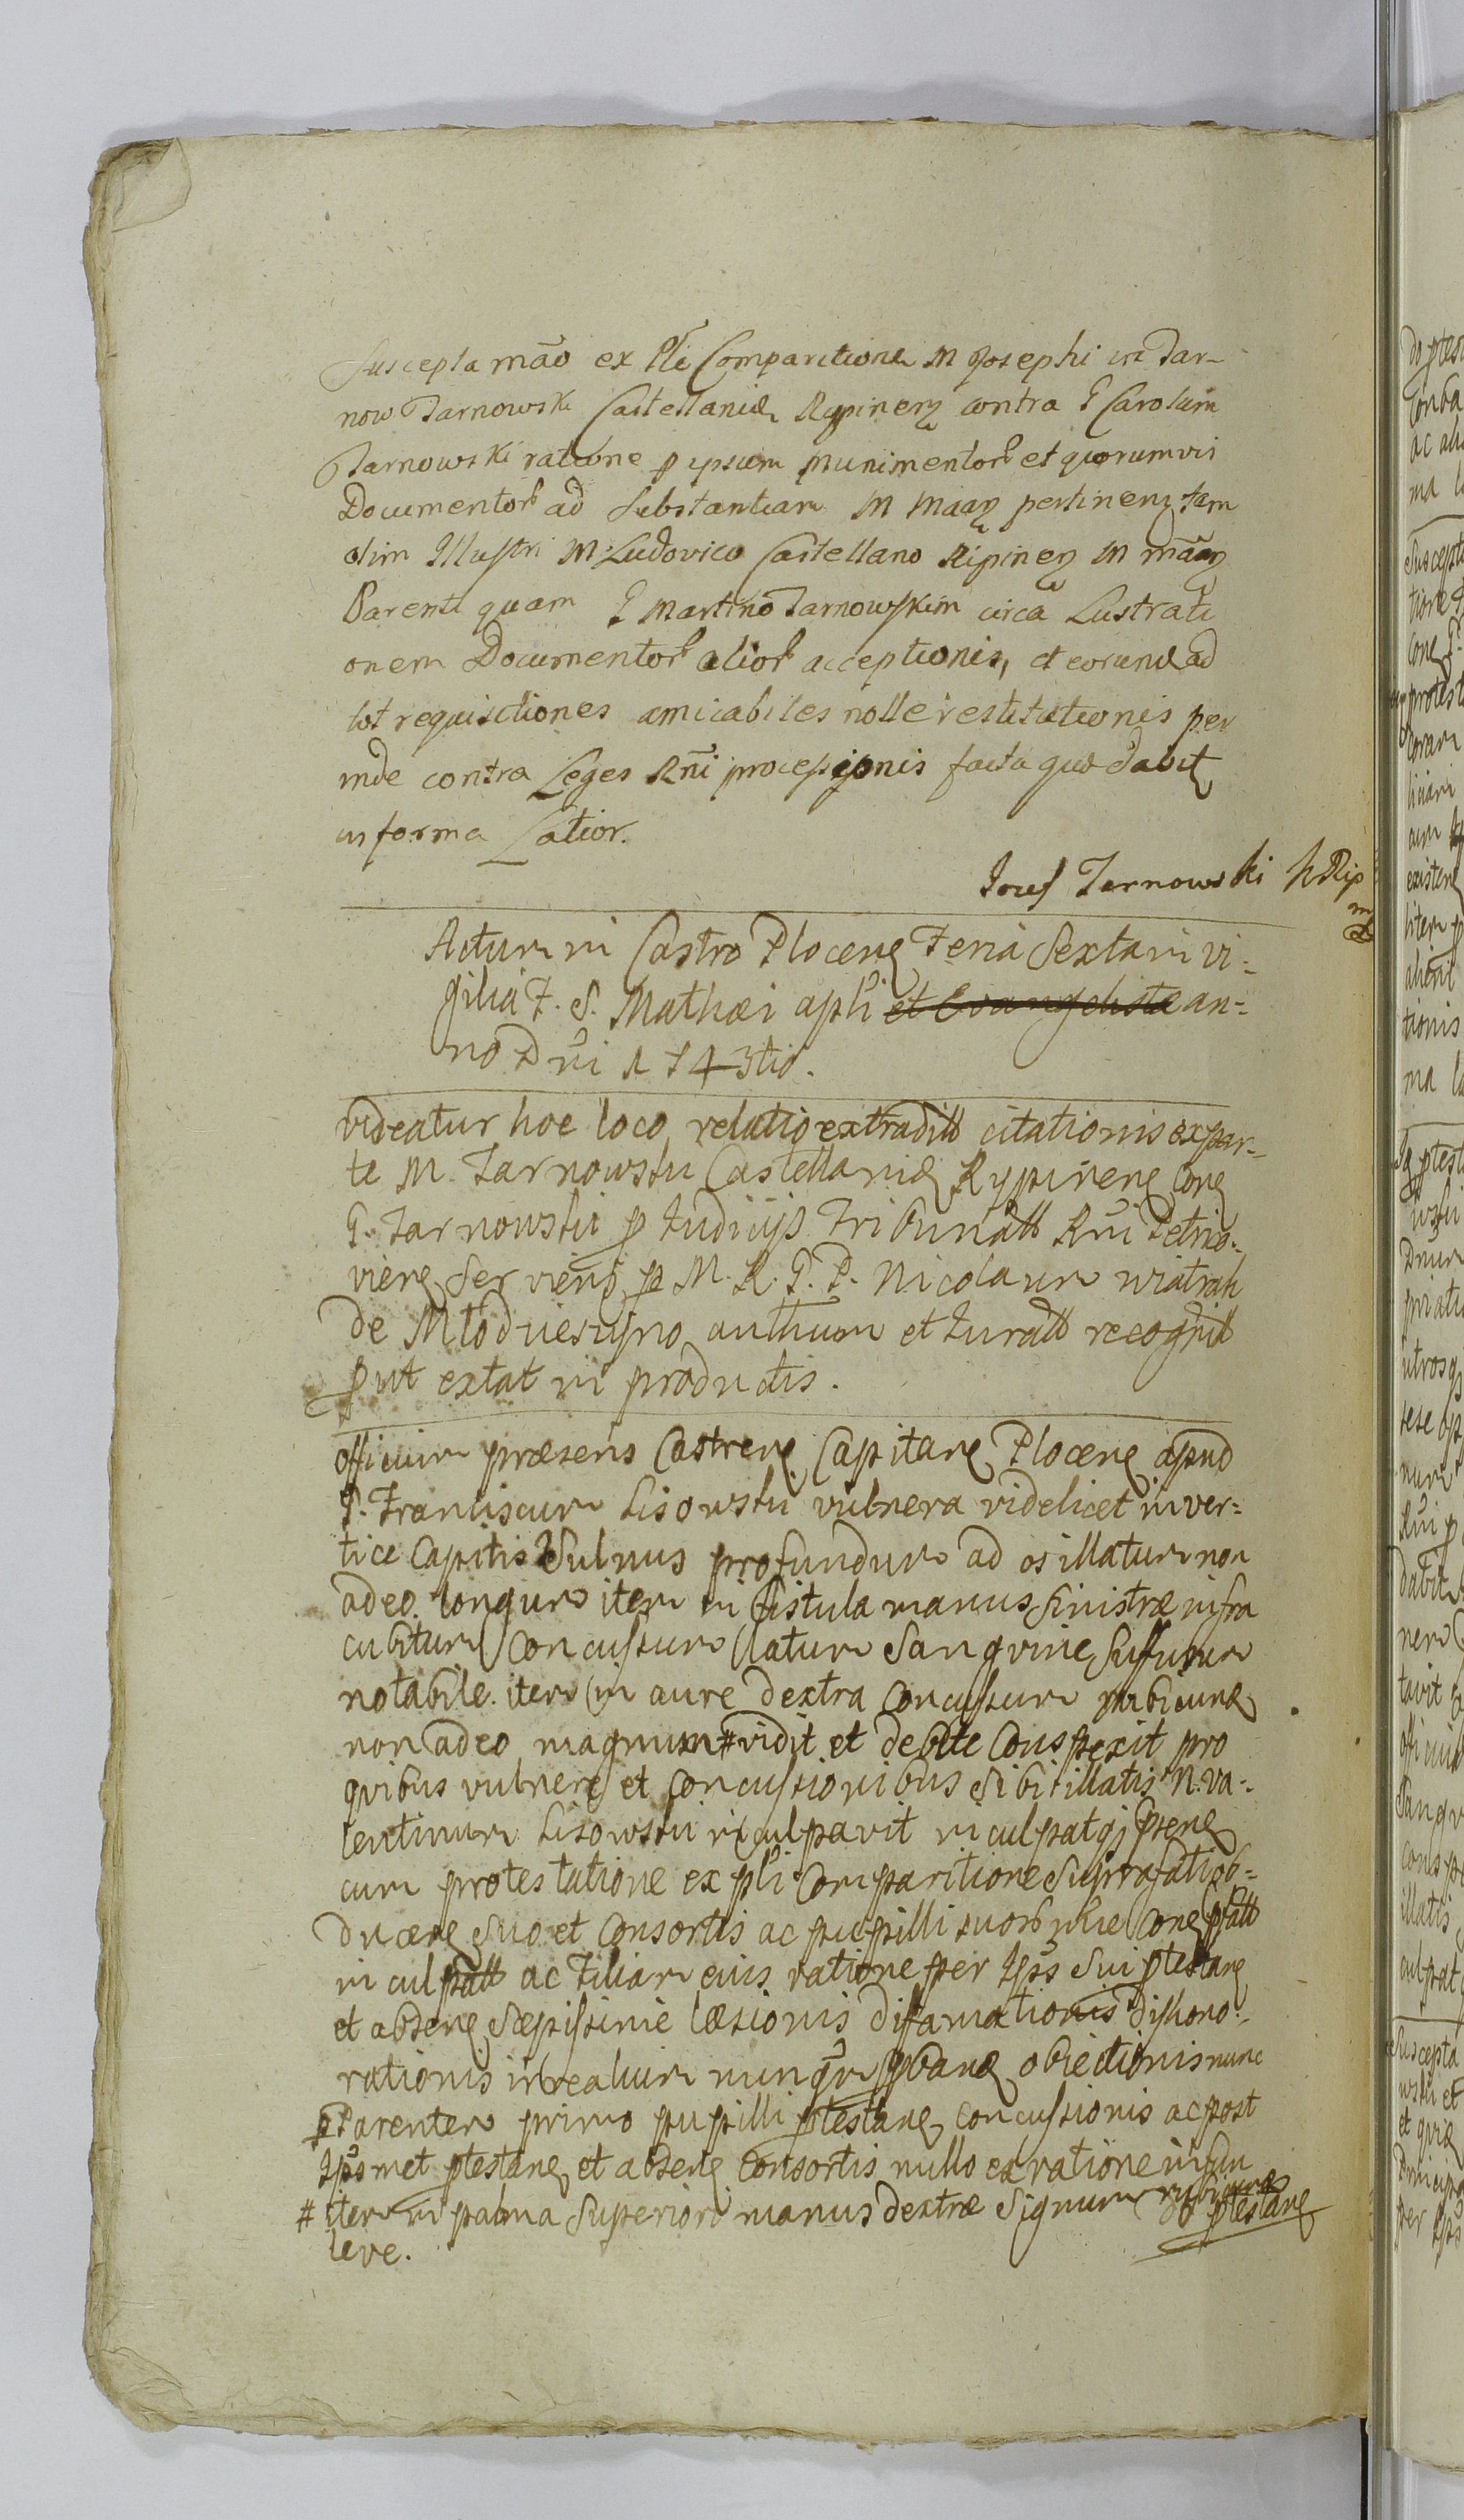 Suscepta mão ex pli Comparitione M Josephi in Tar-
now Tarnowski Castellanidæ Rypinen contra G Carolum
Tarnowski ratione p ipsum munimentor et quorumvis
Documentor ad Substantiam M Maan pertinen tam
olim Illustri M. Ludovico Castellano Ripinen M maan
Parenti quam G Martino Tarnowskim circa Lustrati
onem Documentor alior acceptionis, et eorund ad
tot requisitiones amicabiles nolle restitutionis per
inde contra Leges Rñi processionis facta quod dabit
in forma Latior.
Jozef Tarnowski K Rip
m
Actum in Castro Plocen Feria Sexta in vi=
gilia F. S. Mathæi apli et Evangelistæ an=
no Dni 1743tio.
videatur hoc loco relatio extraditt citationis ex par=
te M. Tarnowski Castellanid Rypinen Con
G. Tarnowski p Judicijs Tribunatt Rni Petrico=
vien Servien p M. R. G. P. Nicolaum Wiatrak
de Młodzieszyno authum et Juratt recognit
put extat in productis.
officium præsens Castren Capitan Plocen apud
G. Franciscum Lisowski vulnera videlicet in ver=
tice Capitis Vulnus profundum ad os illatum non
adeo longum item in fistula manus Sinistræ infra
cubitum Concussum latum Sangvine Suffusum
notabile. item in aure dextra Concussum rubicund
non adeo magnum # vidit et debite Conspexit pro
qvibus vulneri et Concussionibus sibi illatis N. Va=
lentinum Lisowski inculpavit inculpatq pren
cum protestatione ex pli Comparitione Suprafati ob=
ducen Suo et Consortis ac pupilli suor nõie Con pfatt
inculpatt ac Filiam eius ratione per Ips Sui ptestan
et absen Sæpissime læsionis diffamationis dishono=
rationis irrealium nunqm pband obiectionis nunc
p Parentem primo pupilli ptestan concussionis ac post
Ipsmet ptestan et absen Consortis nullo ex ratione insun
# item in palma Superiori manus dextræ Signum rubicund
leve.
do ptestan